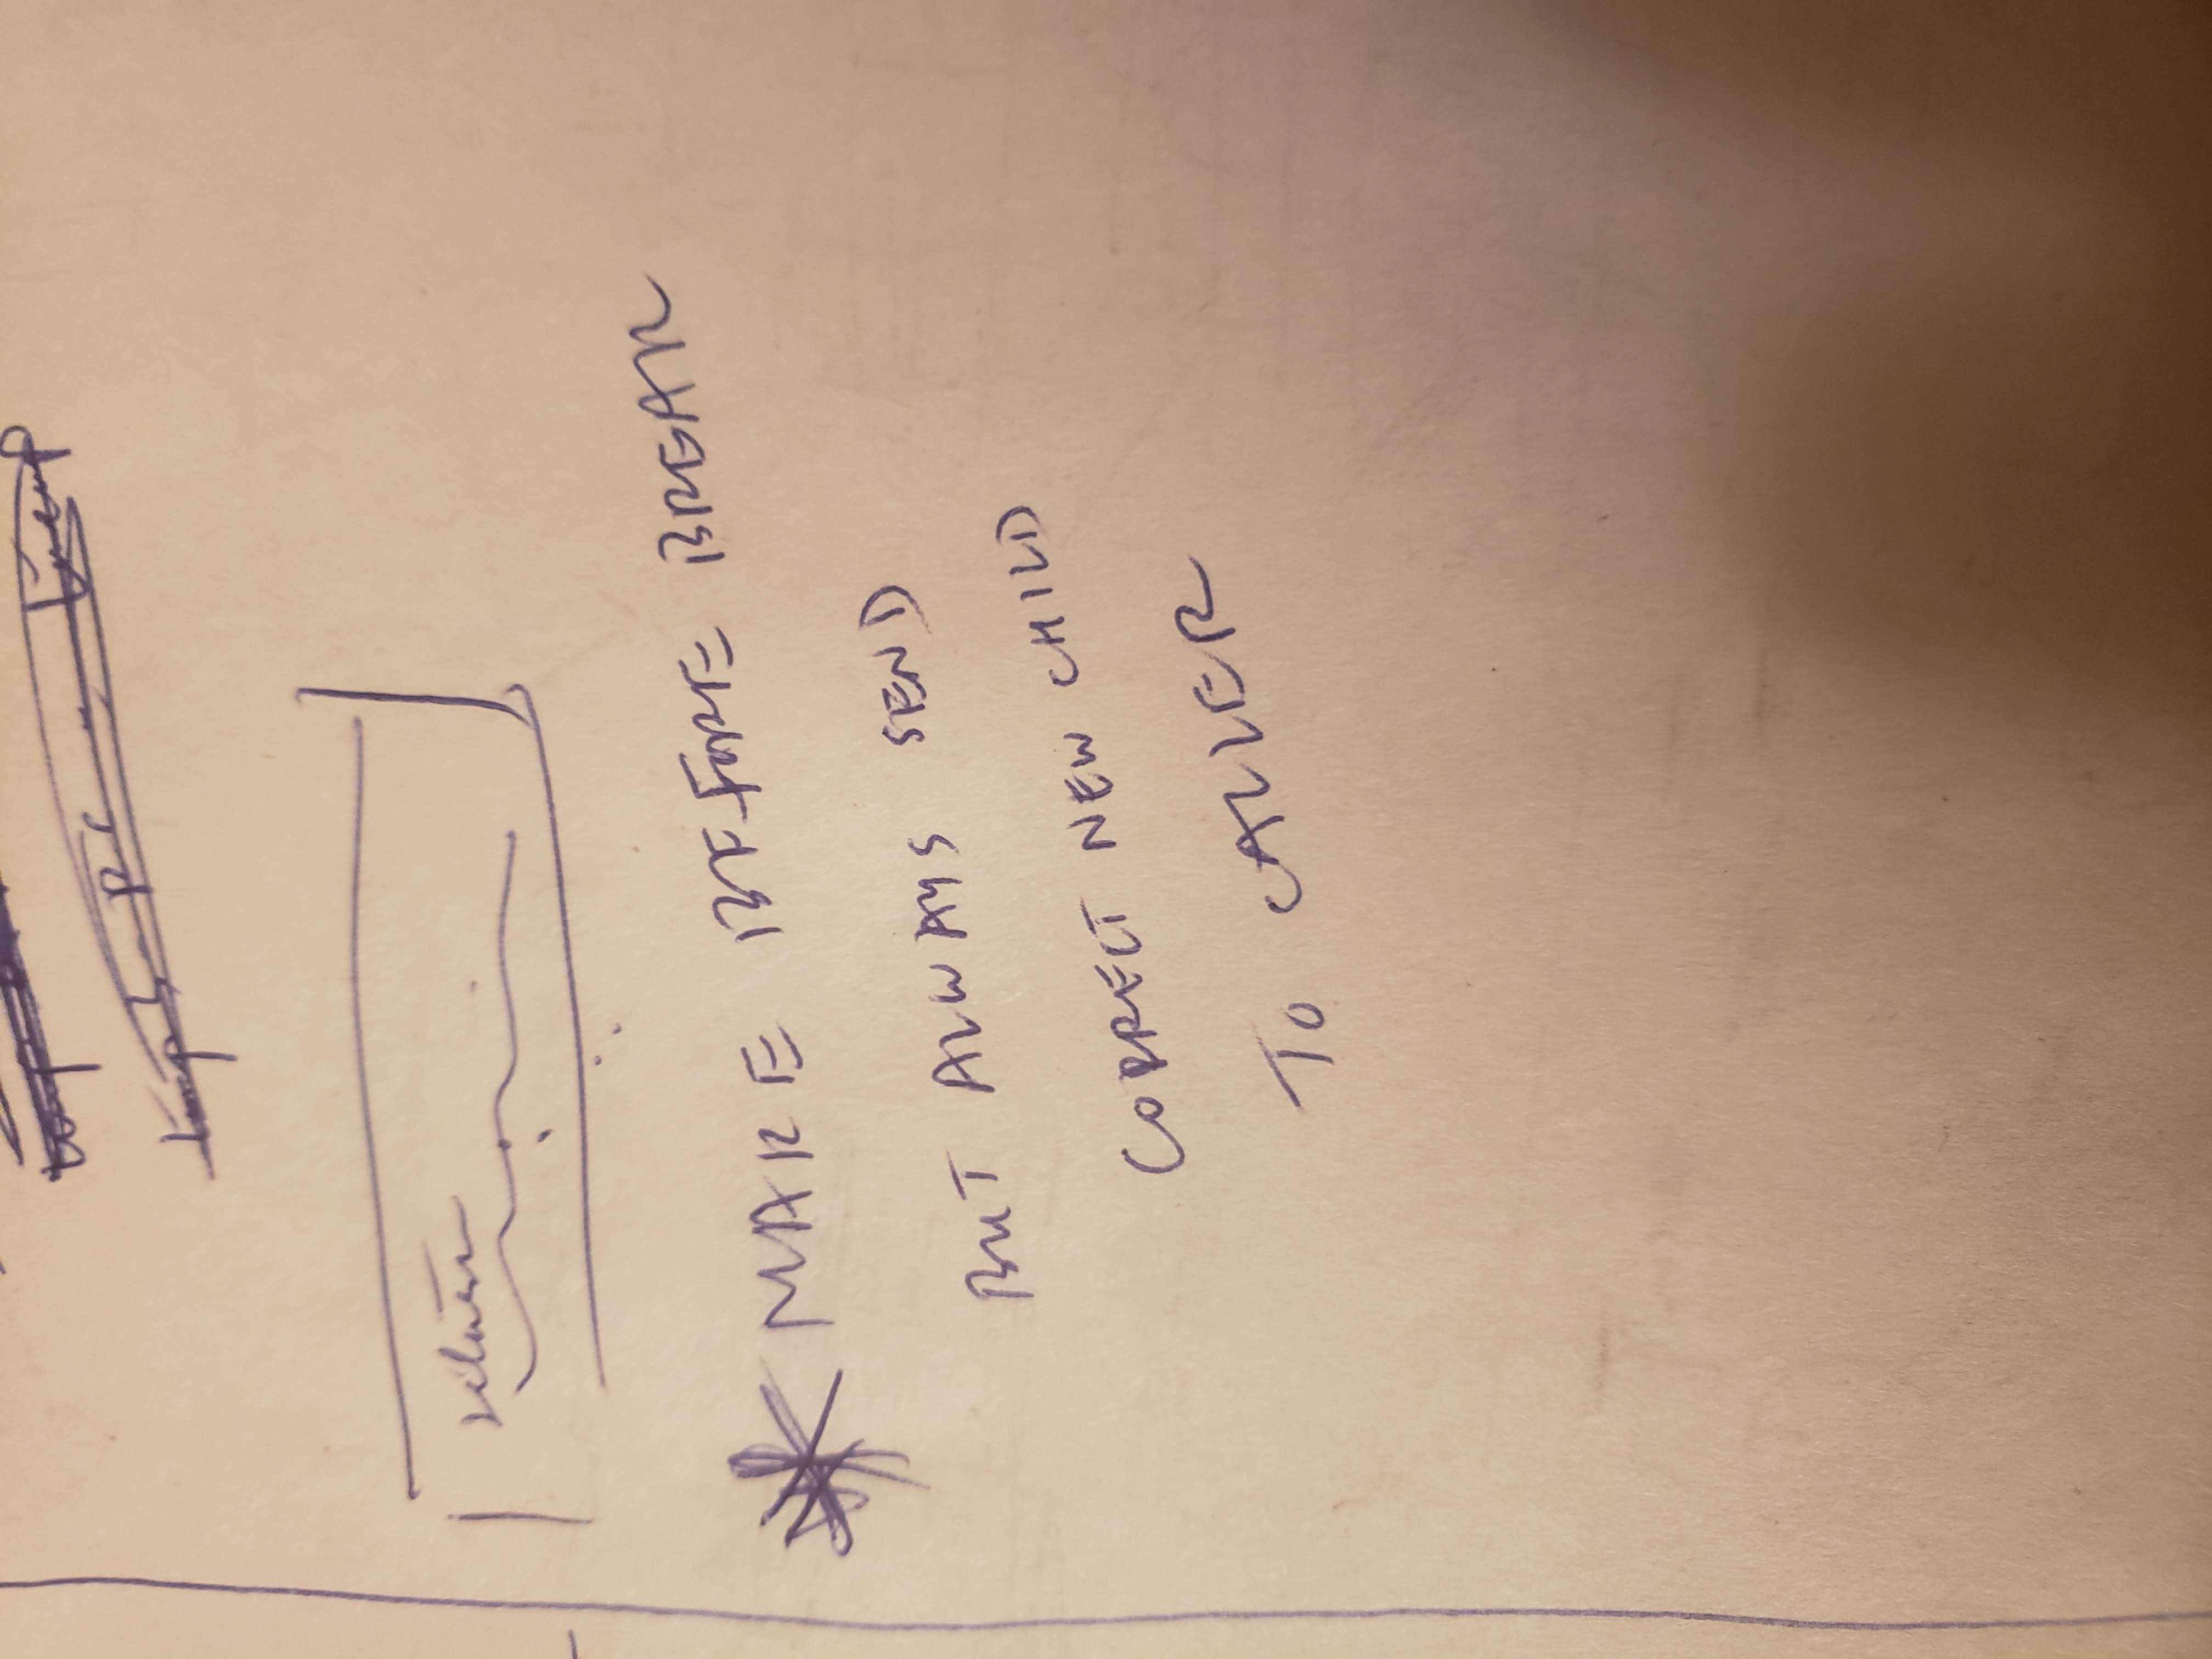 return
* MAKE BEFORE BREAK
BUT ALWAYS SEND
CORRECT NEW CHILD
TO CALLER